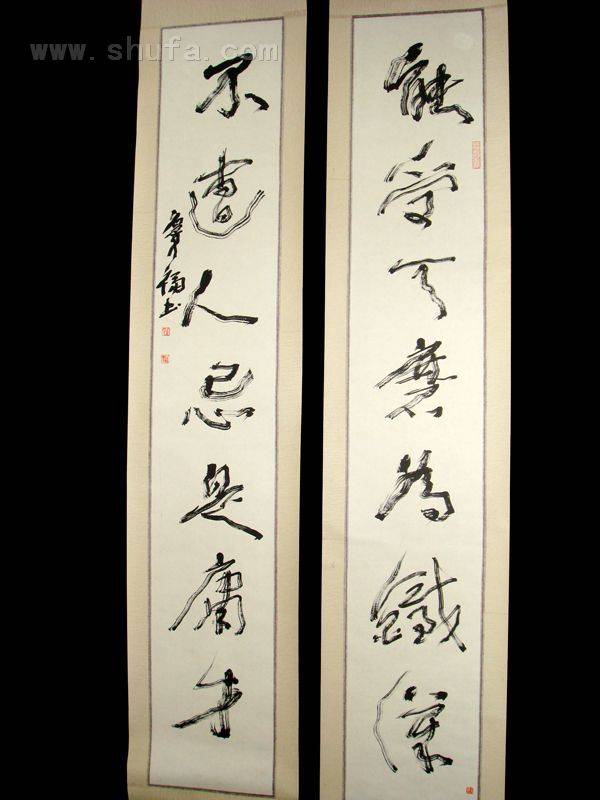 能受天磨为鐵漢
不遭人忌是庸才
福书
www.shufa.com